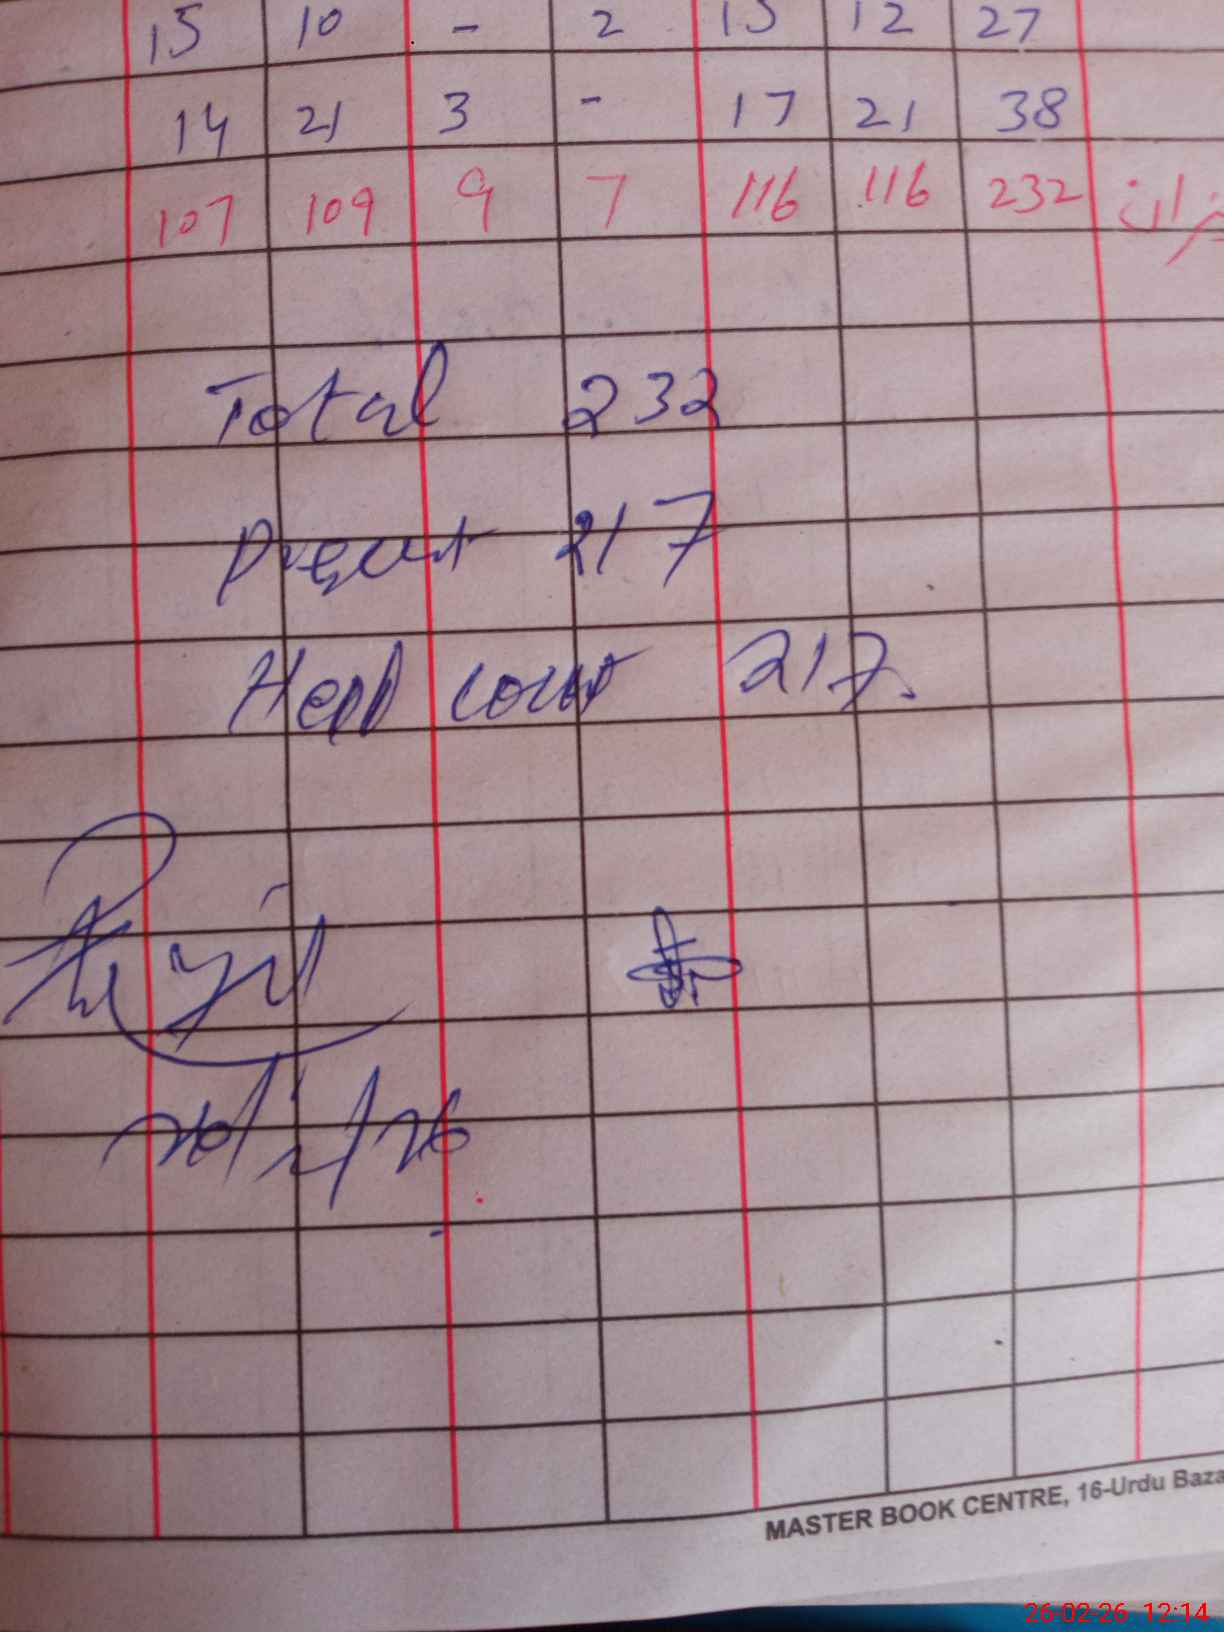 15 10 - 2 15 12 27
14 21 3 - 17 21 38
107 109 9 7 116 116 232 میزان
Total 232
Present 217
Head count 217.
26/2/26
MASTER BOOK CENTRE, 16-Urdu Baza
26-02-26 12:14